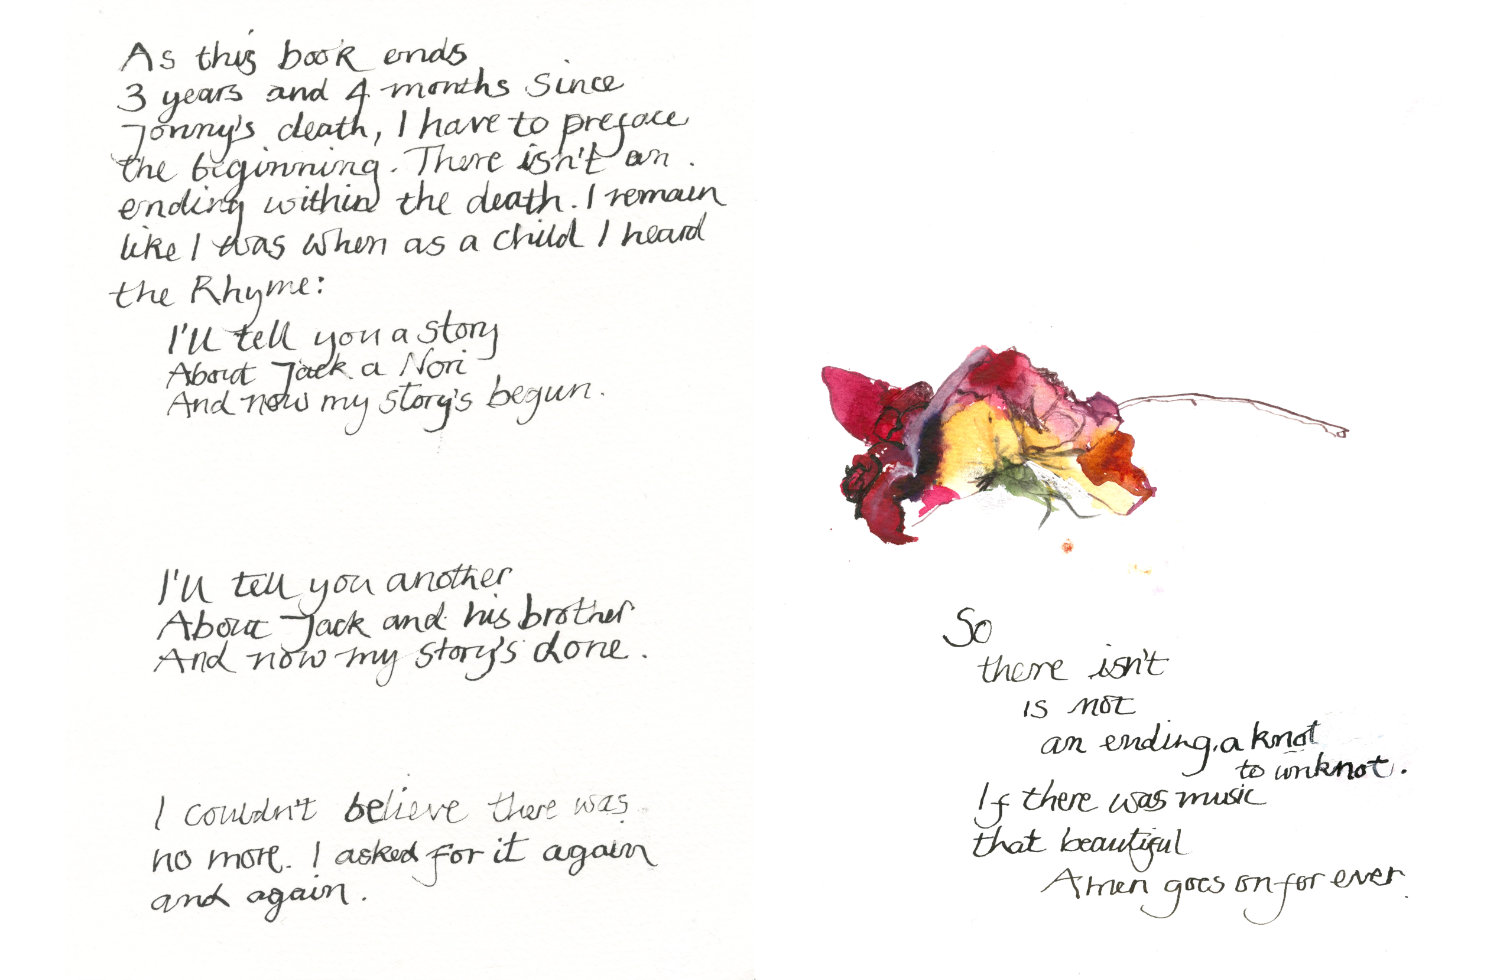 As this book ends
3 years and 4 months since
Jonny's death, I have to preface
the beginning. There isn't an
ending within the death. I remain
like I was when as a child I heard
the Rhyme:
I'll tell you a story
About Jack a Nori
And now my story's begun.
I'll tell you another
About Jack and his brother
And now my story's done.
I couldn't believe there was
no more. I asked for it again
and again.
So
there isn't
is not
an ending, a knot
to unknot.
If there was music
that beautiful
Amen goes on for ever.